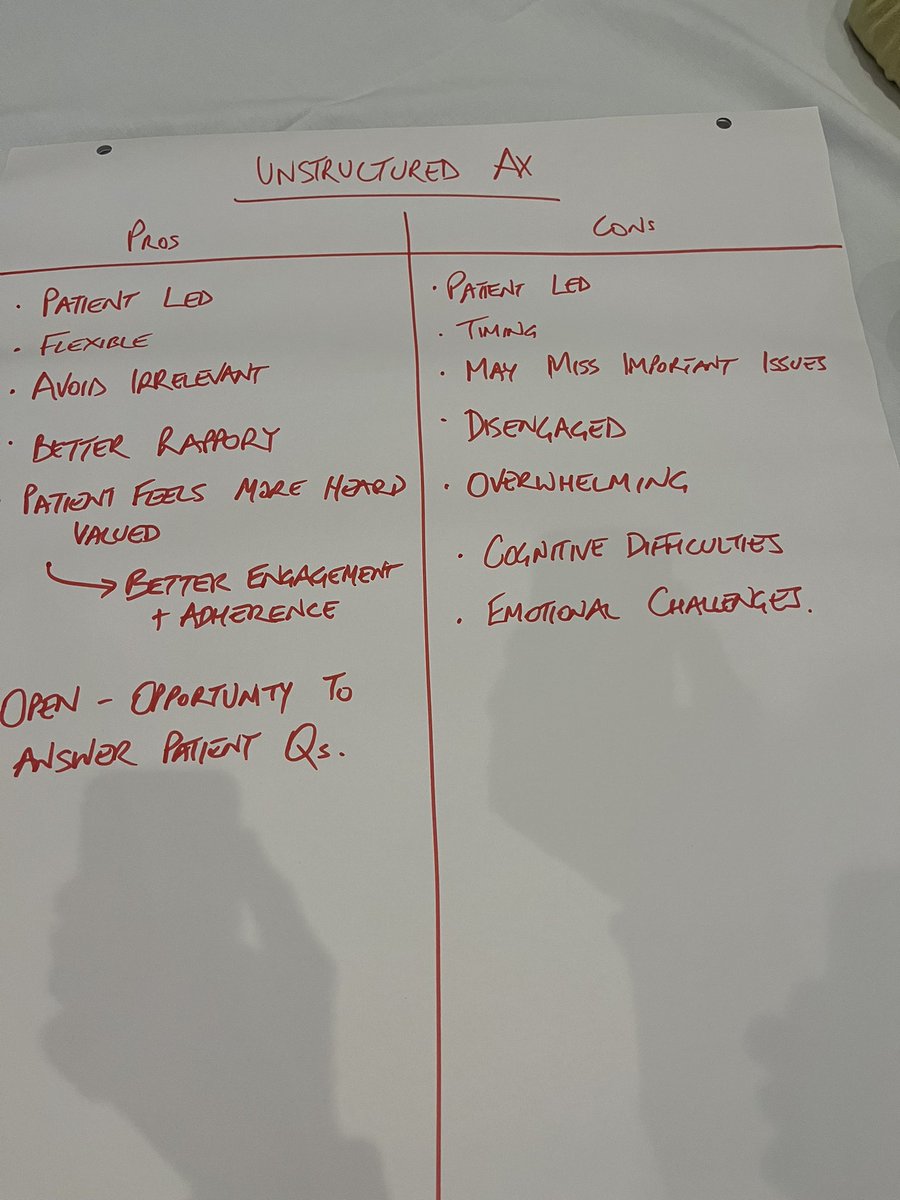 UNSTRUCTURED AX
PROS
• PATIENT LED
• FLEXIBLE
• AVOID IRRELEVANT
• BETTER RAPPORY
• PATIENT FEELS MORE HEARD
VALUED
→ BETTER ENGAGEMENT
+ ADHERENCE
OPEN - OPPORTUNITY TO
ANSWER PATIENT Qs.
CONS
• PATIENT LED
• TIMING
• MAY MISS IMPORTANT ISSUES
• DISENGAGED
• OVERWHELMING
• COGNITIVE DIFFICULTIES
• EMOTIONAL CHALLENGES.